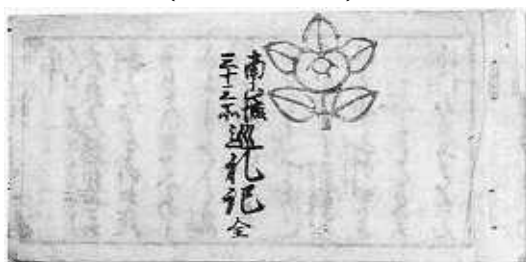 南山城
三十三所
巡礼記
全